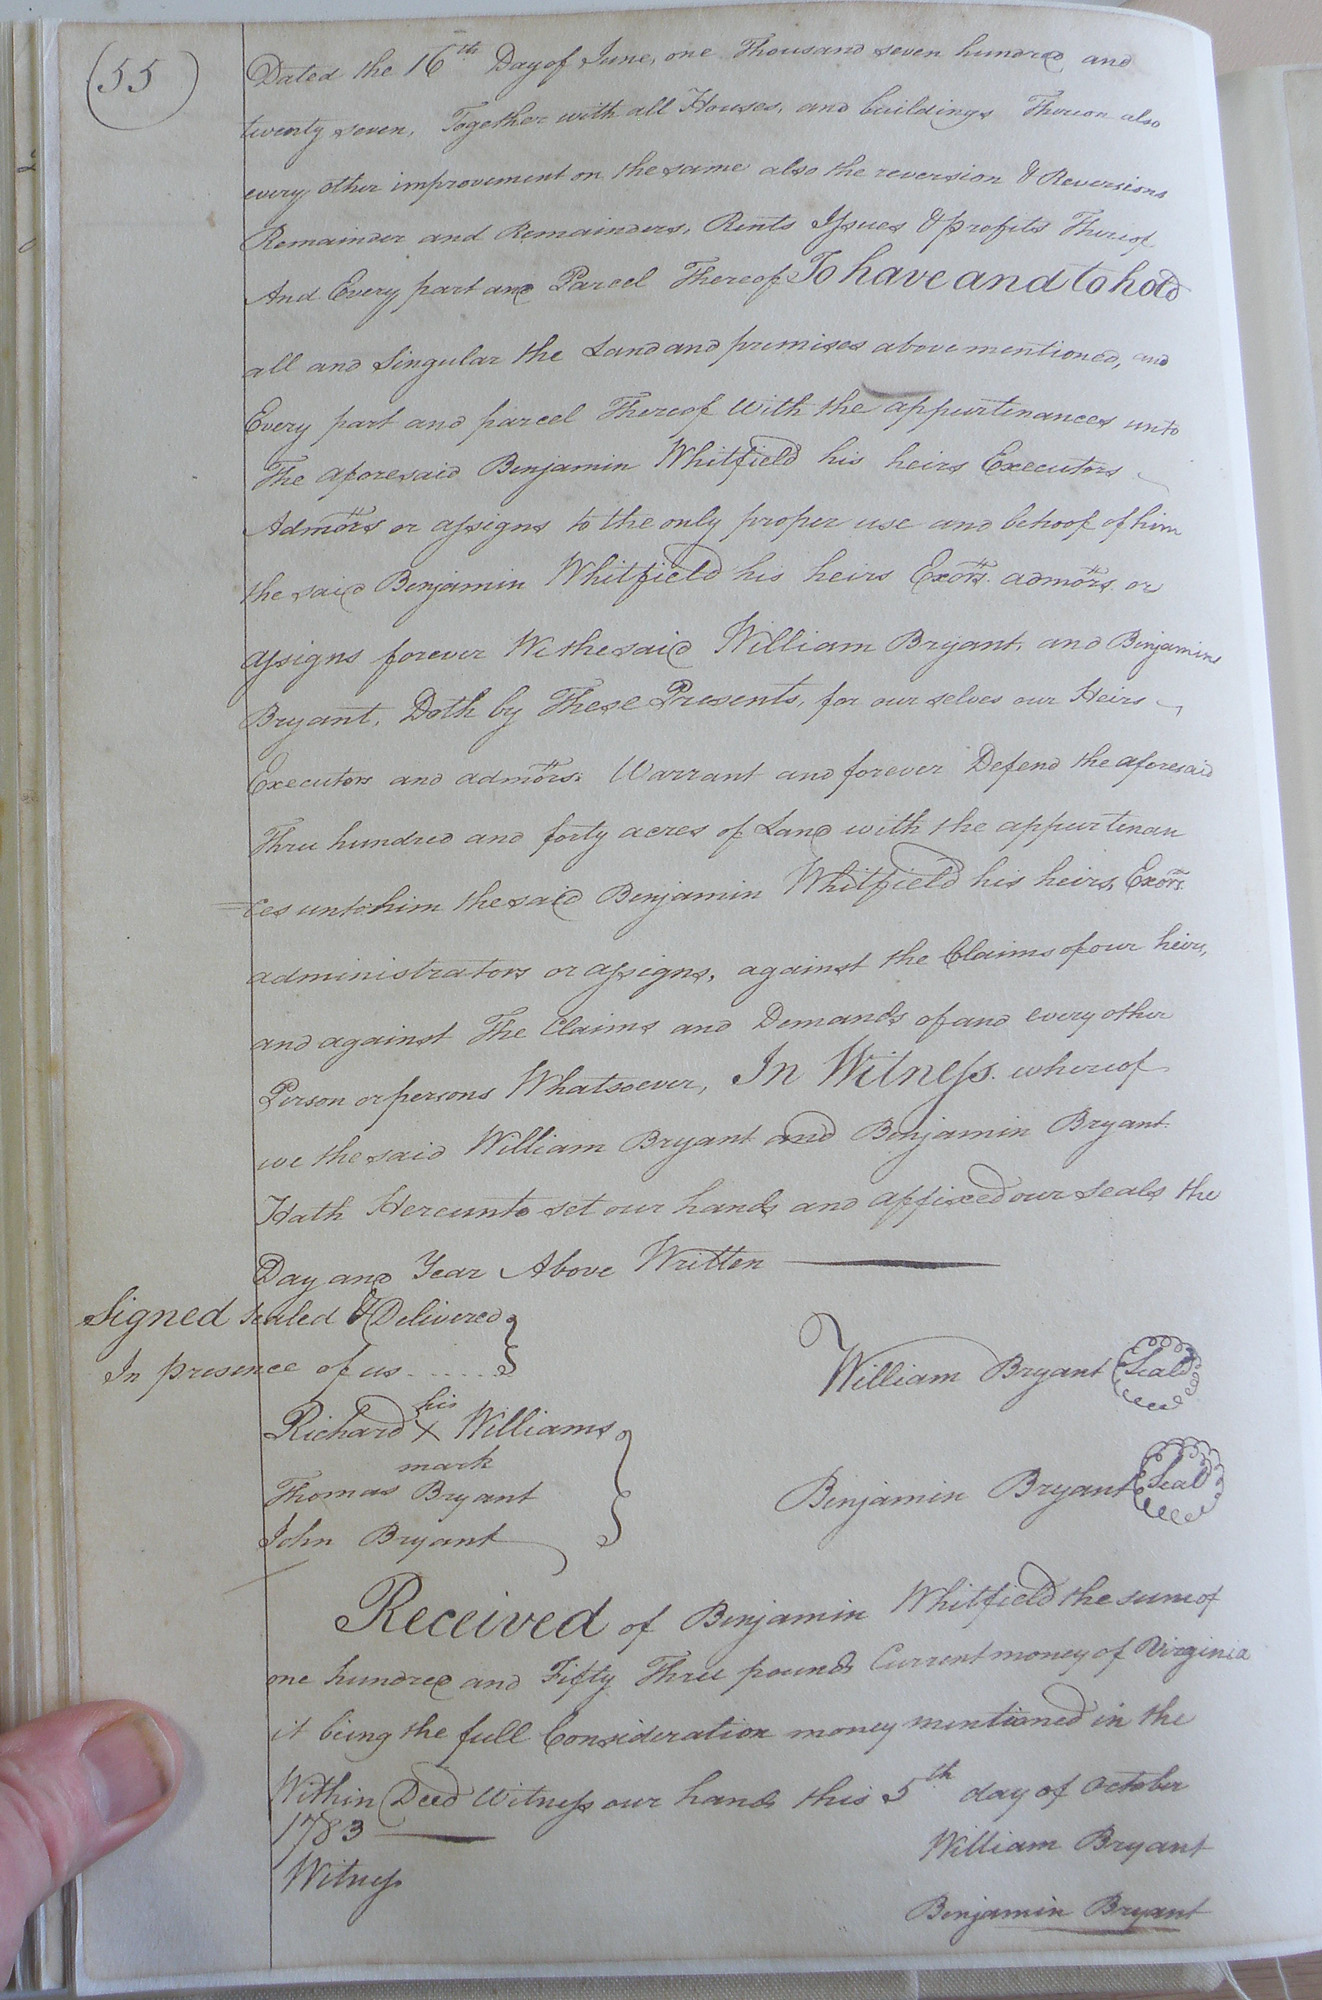 (55)
Dated the 16th Day of June, one Thousand seven hundred and
twenty seven, Together with all Houses, and buildings Thereon also
every other improvement on the same also the reversion & Reversions
Remainder and Remainders, Rents Issues & profits Thereof
And Every part and Parcel Thereof To have and to hold
all and Singular the Land and premises above mentioned, and
Every part and parcel Thereof With the appurtenances unto
The aforesaid Benjamin Whitfield his heirs Executors
Admors or assigns to the only proper use and behoof of him
the said Benjamin Whitfield his heirs Exors. admors. or
assigns forever We the said William Bryant, and Benjamine
Bryant, Doth by These Presents, for our selves our Heirs
Executors and admors. Warrant and forever Defend the aforesaid
Three hundred and forty acres of Land with the appurtenan
=ces unto him the said Benjamin Whitfield his heirs, Exors.
administrators or assigns, against the Claims of our heirs,
and against The Claims and Demands of and every other
Person or persons Whatsoever, In Witness. whereof
we the said William Bryant and Benjamin Bryant.
Hath Hereunto set our hands and affixed our seals the
Day and Year Above Written
Signed sealed & Delivered
In presence of us......
William Bryant Seal
Richard his X mark Williams
Thomas Bryant
Benjamin Bryant Seal
John Bryant
Received of Benjamin Whitfield the sum of
one hundred and Fifty Three pounds Current money of Virginia
it being the full Consideration money mentioned in the
Within Deed Witness our hands this 5th day of October
1783
William Bryant
Witness
Benjamin Bryant